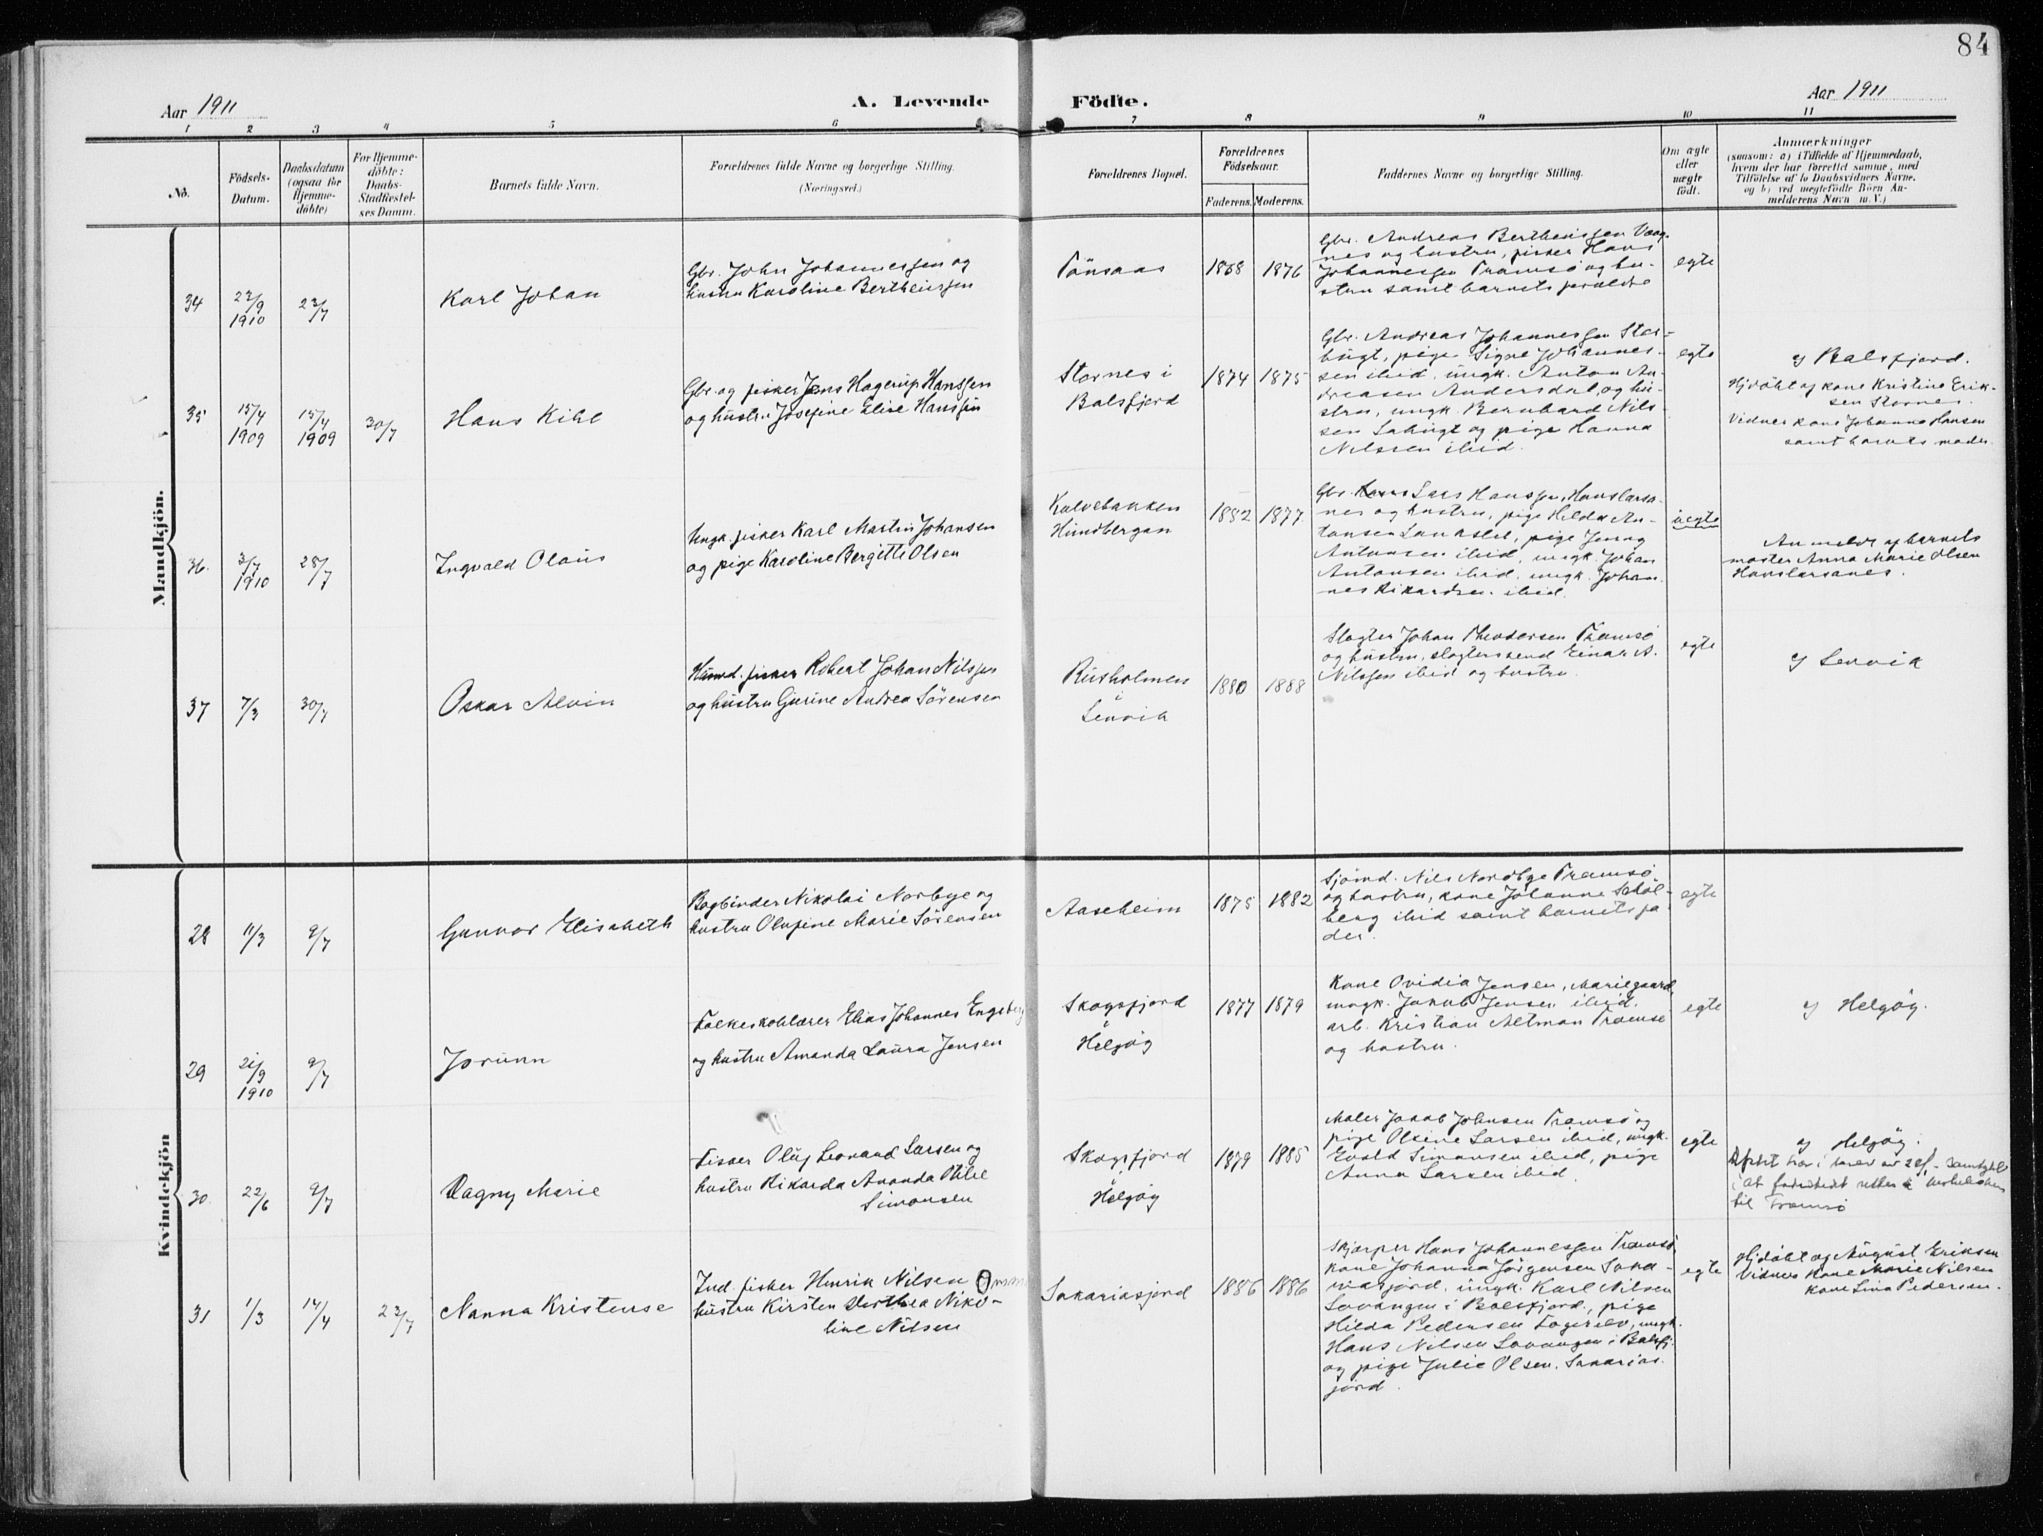 84
Aar 1911
A. Levende Födte.
Aar 1911
1 2 3 4 5 6 7 8 9 10 11
No.
Födsels-
Datum.
Daabsdatum
(ogsaa for
Hjemme-
döbte)
For Hjemme-
döbte:
Daabs-
Stadfæstel-
ses Datum.
Barnets fulde Navn.
Forældrenes fulde Navne og borgerlige Stilling.
(Næringsvei.)
Forældrenes Bopæl.
Forældrenes
Födselsaar.
Faderens. Moderens.
Faddernes Navne og borgerlige Stilling.
Om ægte
eller
uægte
födt.
Anmærkninger
(saasom: a) i Tilfælde af Hjemmedaab,
hvem der har forrettet samme, med
Tilföielse af to Daabsvidners Navne,
og b) ved uægtefödte Börn An-
melderens Navn m. V.)
Mandkjön.
34
23/9
1910
23/7
Karl Johan
Gbr. John Johannessen og
hustru Karoline Bertheussen
Tönsaas
1868
1876
Gbr. Andreas Bertheussen Vaag-
nes og hustru, fisker Hans
Johannessen Tromsø og hu-
stru samt barnets forældre
egte
35
15/4
1909
15/4
1909
30/7
Hans Kihl
Gbr og fisker Jens Hagerup Hanssen
og hustru Josefine Elise Hanssen
Stornes i
Balsfjord
1874
1875
Gbr. Andreas Johannessen Stor-
bugt, pige Signe Johannes-
sen ibid, ungk. Anton An-
dreasen Andersdal og hu-
stru, ungk. Bernhard Nils-
sen og pige Hanna
Nilssen ibid.
egte
af Balsfjord.
Hjdöbt af kone Kristine Erik-
sen Stornes.
Vidner kone Johanna Hansen
samt barnets moder.
36.
3/7
1910
28/7
Ingvald Olaus
Ungk. fisker Karl Martin Johansen
og pige Karoline Bergitte Olsen
Kalvebakken
Hundbergan
1882
1877
Gbr. Lars Hanssen, Hanslarsa-
nes og hustru, pige Hilda An-
tonsen, pige Jenny
Antonsen ibid, ungk. Johan
Antonsen ibid, ungk. Johan-
nes Rikardsen ibid.
uegte
Anmeldt af barnets
moster Anna Marie Olsen
Hanslarsanes.
37
7/3
30/7
Oskar Alvin
Husmd. fisker Robert Johan Nilssen
og hustru Gurine Andrea Sörensen
Rusholmen
i
Lenvik
1880
1888
Slagter Johan Theodorsen Tromsø
og hustru, slagtersvend Einar A.
Nilssen ibid og hustru.
egte
af Lenvik
Kvindekjön
28
11/3
9/7
Gunvor Elisabeth
Bogbinder Nikolai Norbye og
hustru Olufine Marie Sörensen
Aaseheim
1875
1882
Sjömd. Nils Nordbye Tromsø
og hustru, kone Johanne Schöl-
berg ibid samt barnets fa-
der.
egte
29
21/9
1910
9/7
Jorunn
Folkeskolelærer Elias Johannes Engeberg
og hustru Amanda Laura Jensen
Skogsfjord
i
Helgøy
1877
1879
Kone Ovidia Jensen, Mariegaard,
ungk. Jakob Jensen ibid,
arb. Kristian Altman Tromsø
og hustru.
egte
af Helgøy.
30.
22/6
9/7
Dagny Marie
Fisker Oluf Leonard Larsen og
hustru Rikarda Amanda Otilie
Simonsen
Skogsfjord
i
Helgøy
1879
1885
Maler Jakob Johnsen Tromsø og
pige Olsine Larsen ibid, ungk.
Evald Simonsen ibid, pige
Anna Larsen ibid.
egte
af Helgøy.
i at fødested rettes
til Tromsø
31
1/3
17/4
23/7
Nanna Kristense
Ind. fisker Henrik Nilsen og
hustru Kirsten Dorthea Niko-
line Nilsen
Sakariasjord
1886
1886
Skjærper Hans Johannessen Tromsø,
kone Johanna Jørgensen Saka-
riasjord, ungk. Karl Nilsen
Lavangen i Balsfjord, pige
Hilda Pedersen Fagerelv, ungk.
Hans Nilsen Lavangen i Balsfj.
og pige Julie Olsen, Sakarias-
jord.
egte
Hjdöbt af August Eriksen
Vidner kone Marie Nilsen
kone Lina Pedersen.